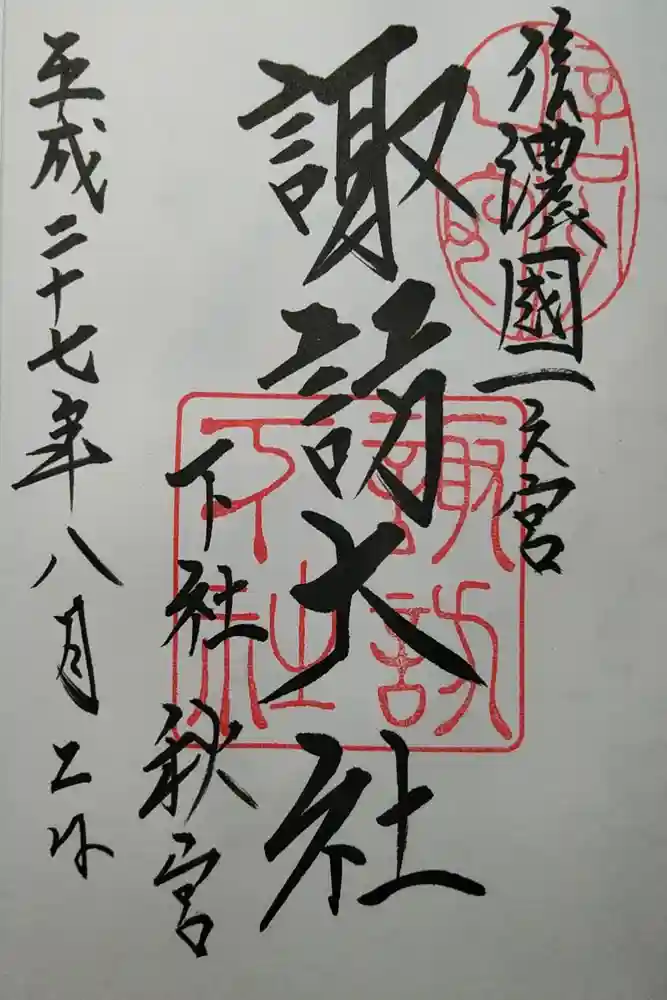 信濃國一之宮
諏訪大社
下社秋宮
平成二十七年八月二日
諏訪
下之社